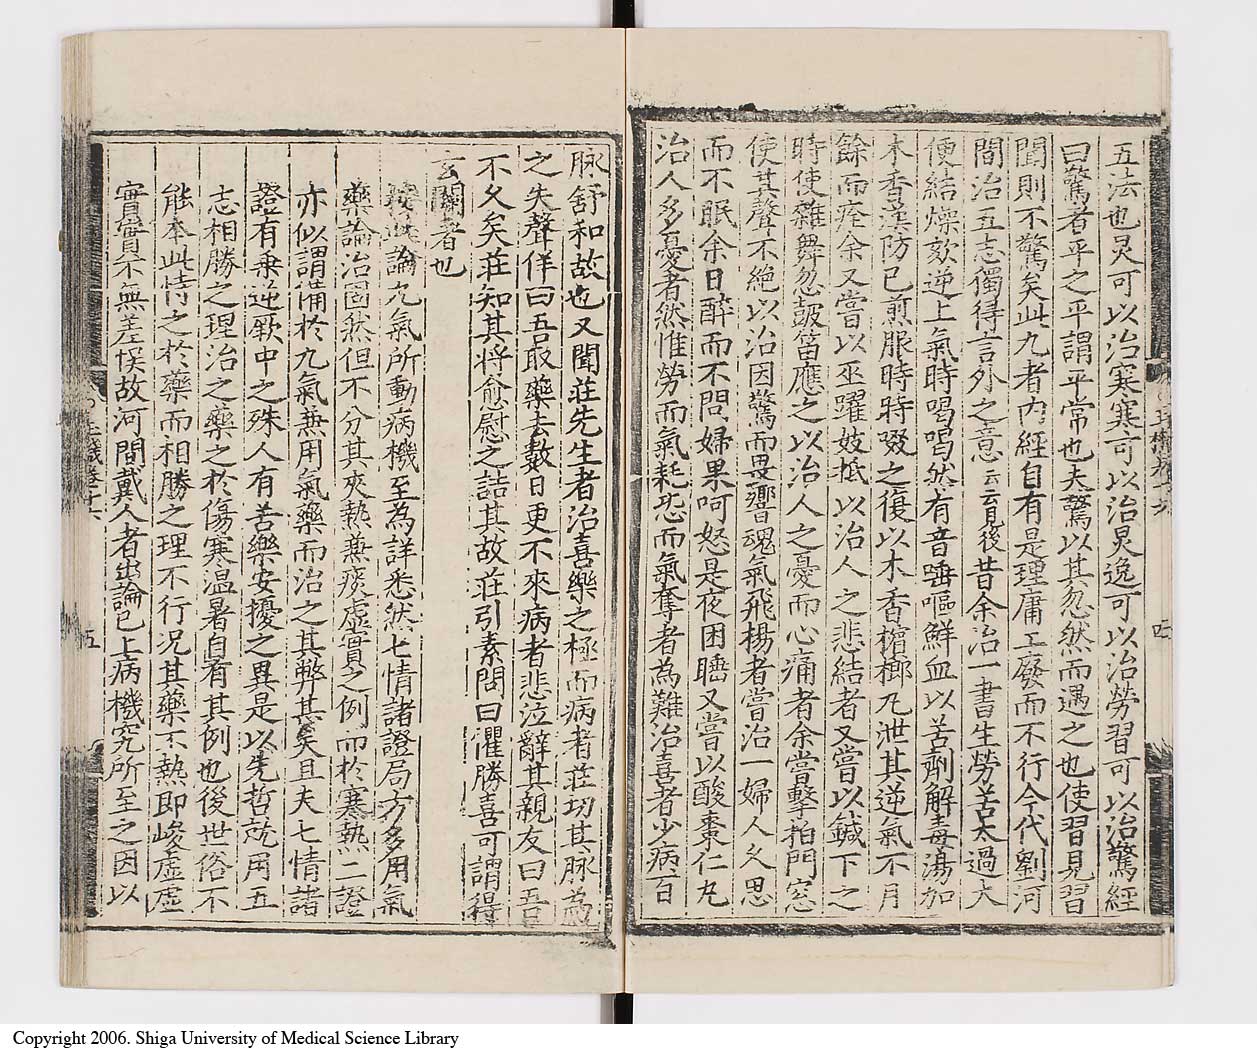 五法也炅可以治寒寒可以治炅逸可以治勞習可以治驚經
曰驚者平之平謂平常也夫驚以其忽然而遇之也使習見習
聞則不驚矣此九者內經自有是理庸工廢而不行今代劉河
間治五志獨得言外之意云云見後昔余治一書生勞苦太過大
便結燥欬逆上氣時喝喝然有音唾嘔鮮血以苦劑解毒湯加
木香漢防已煎服時時啜之復以木香檳榔丸泄其逆氣不月
餘而痊余又嘗以巫躍妓抵以治人之悲結者又嘗以鍼下之
時使雜舞忽皷笛應之以治人之憂而心痛者余嘗擊拍門窓
使其聲不絕以治因驚而畏響魂氣飛楊者嘗治一婦人久思
而不眠余日醉而不問婦果呵怒是夜困睡又嘗以酸棗仁丸
治人多憂者然惟勞而氣耗恐而氣奪者為難治喜者少病百
脉舒和故也又聞莊先生者治喜樂之極而病者莊切其脉為
之失聲佯曰吾取藥去數日更不來病者悲泣辭其親友曰吾
不久矣莊知其將愈慰之詰其故莊引素問曰懼勝喜可謂得
玄關者也
按此論九氣所動病機至為詳悉然七情諸證局方多用氣
藥論治固然但不分其夾熱兼痰虛實之例而於寒熱二證
亦似謂備於九氣兼用氣藥而治之其弊甚矣且夫七情諸
證有乖逆厥中之殊人有苦樂安擾之異是以先哲旣用五
志相勝之理治之藥之於傷寒溫暑自有其例也後世俗不
能本此情之於藥而相勝之理不行况其藥不熱即峻虛虛
實實不無差悞故河間戴人者出論已上病機究所至之因以
五
四
Copyright 2006. Shiga University of Medical Science Library